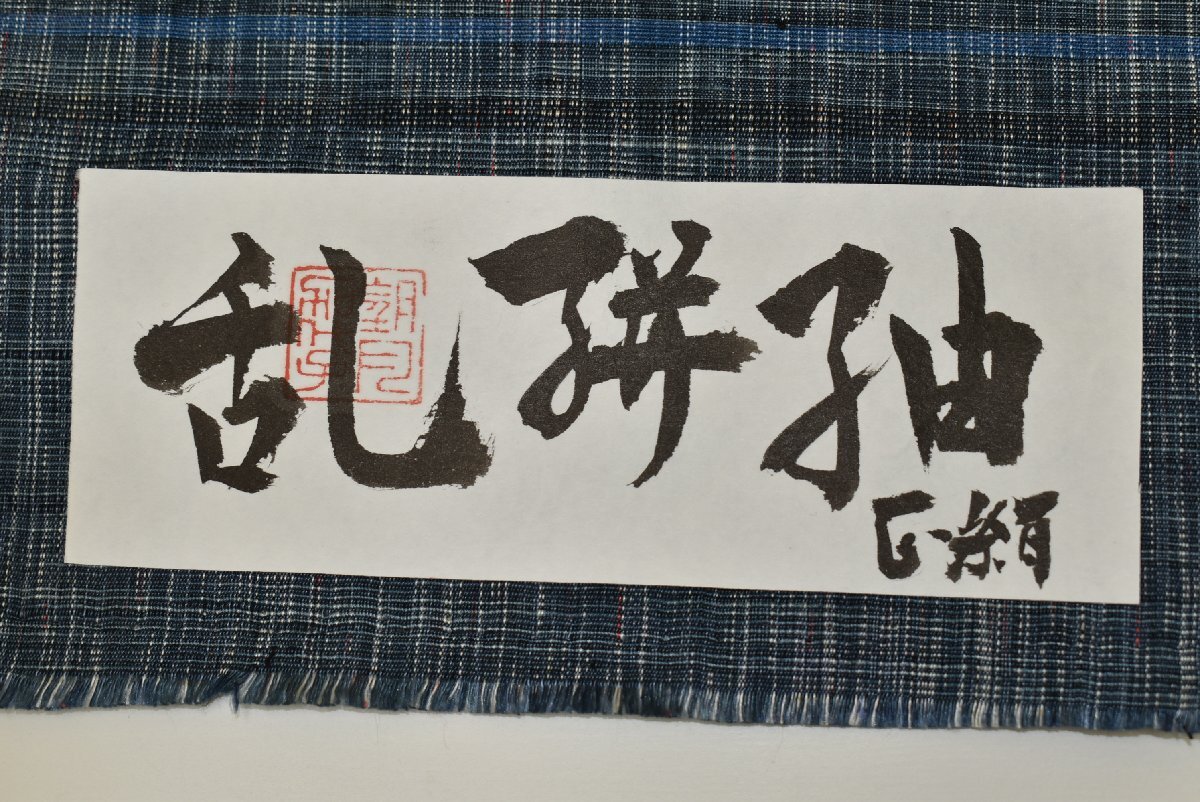 乱絣紬
正絹